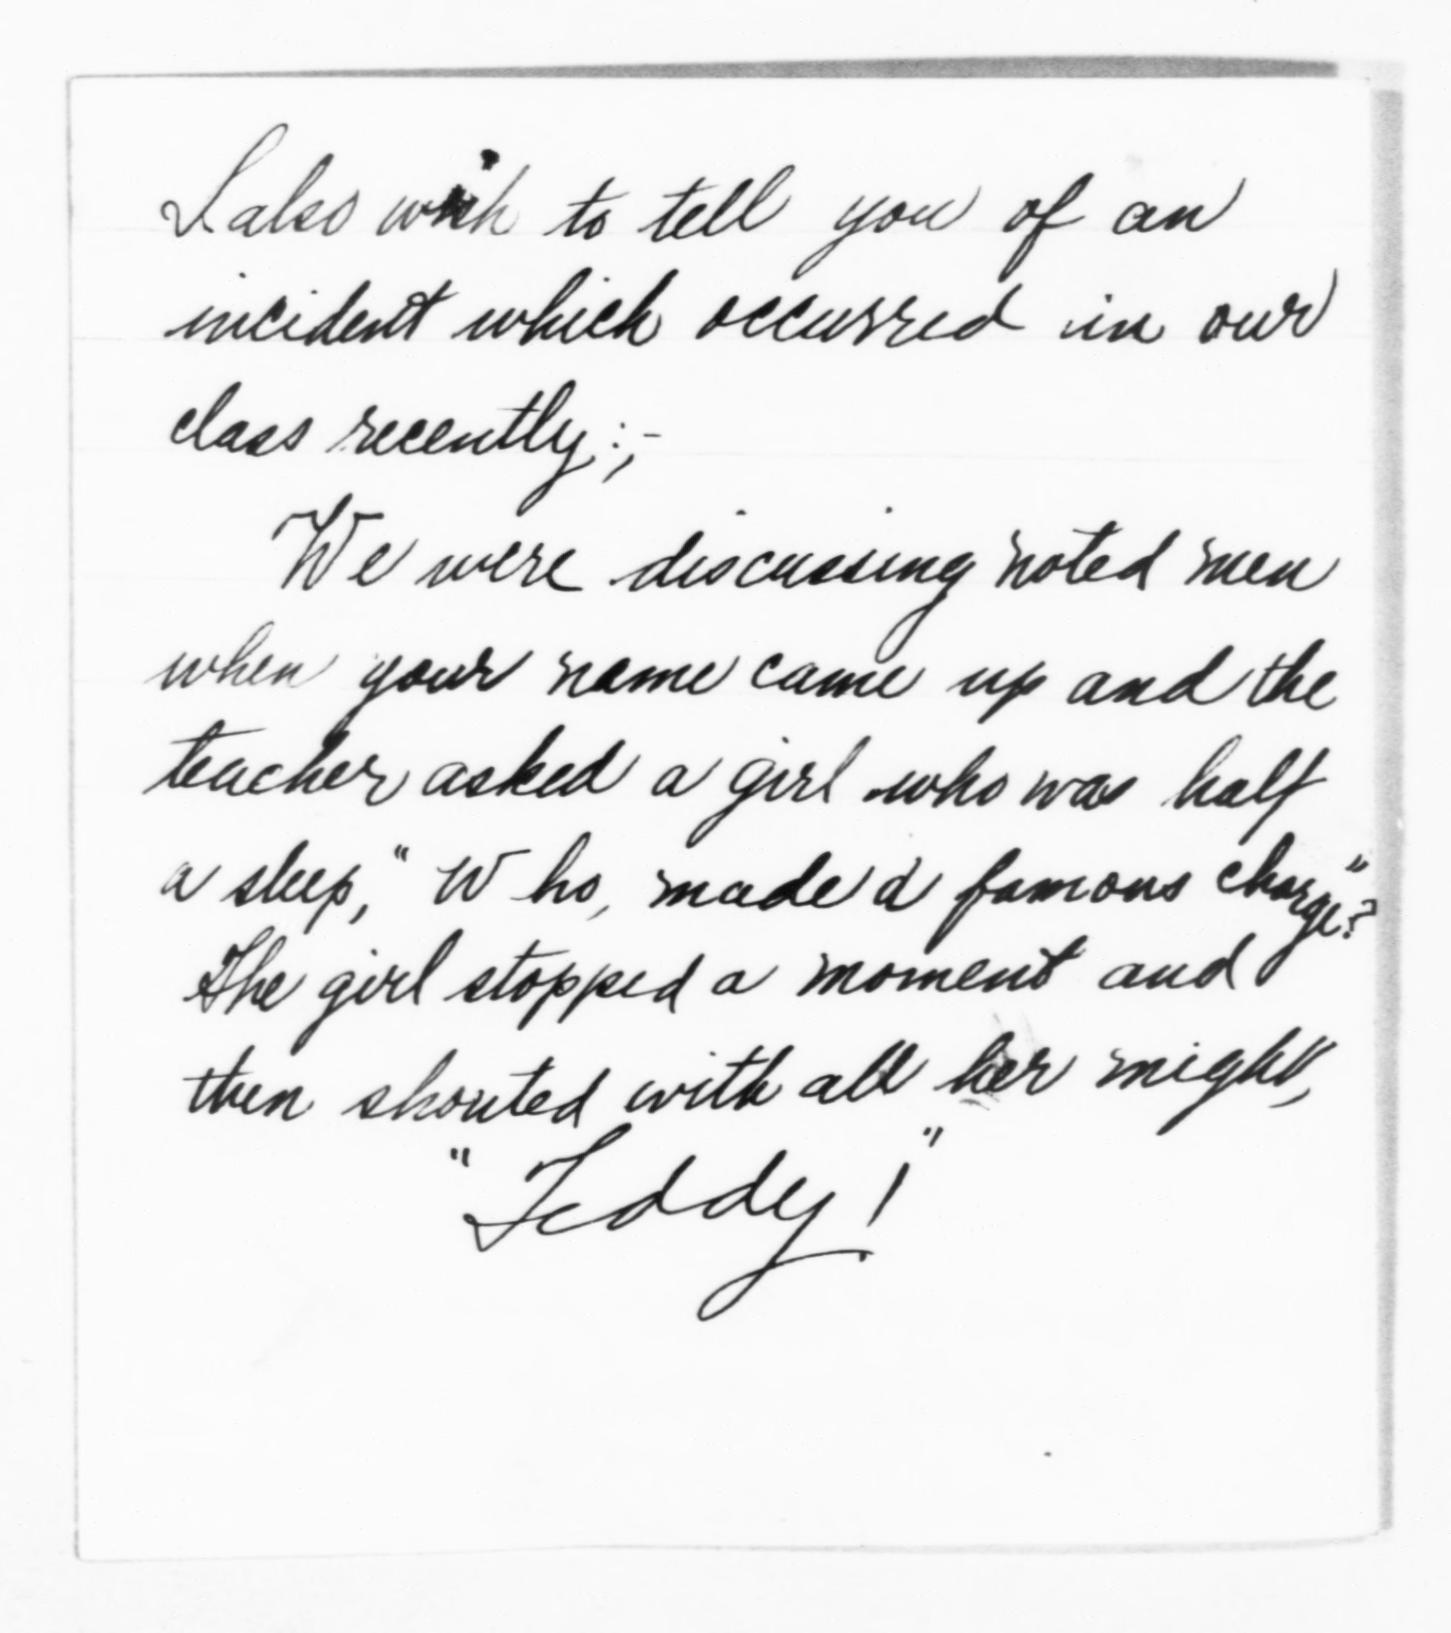 I also wish to tell you of an
incident which occurred in our
class recently:;-
We were discussing noted men
when your name came up and the
teacher asked a girl who was half
a sleep, "Who, made a famous charge"?
The girl stopped a moment and
then shouted with all her might,
"Teddy!"